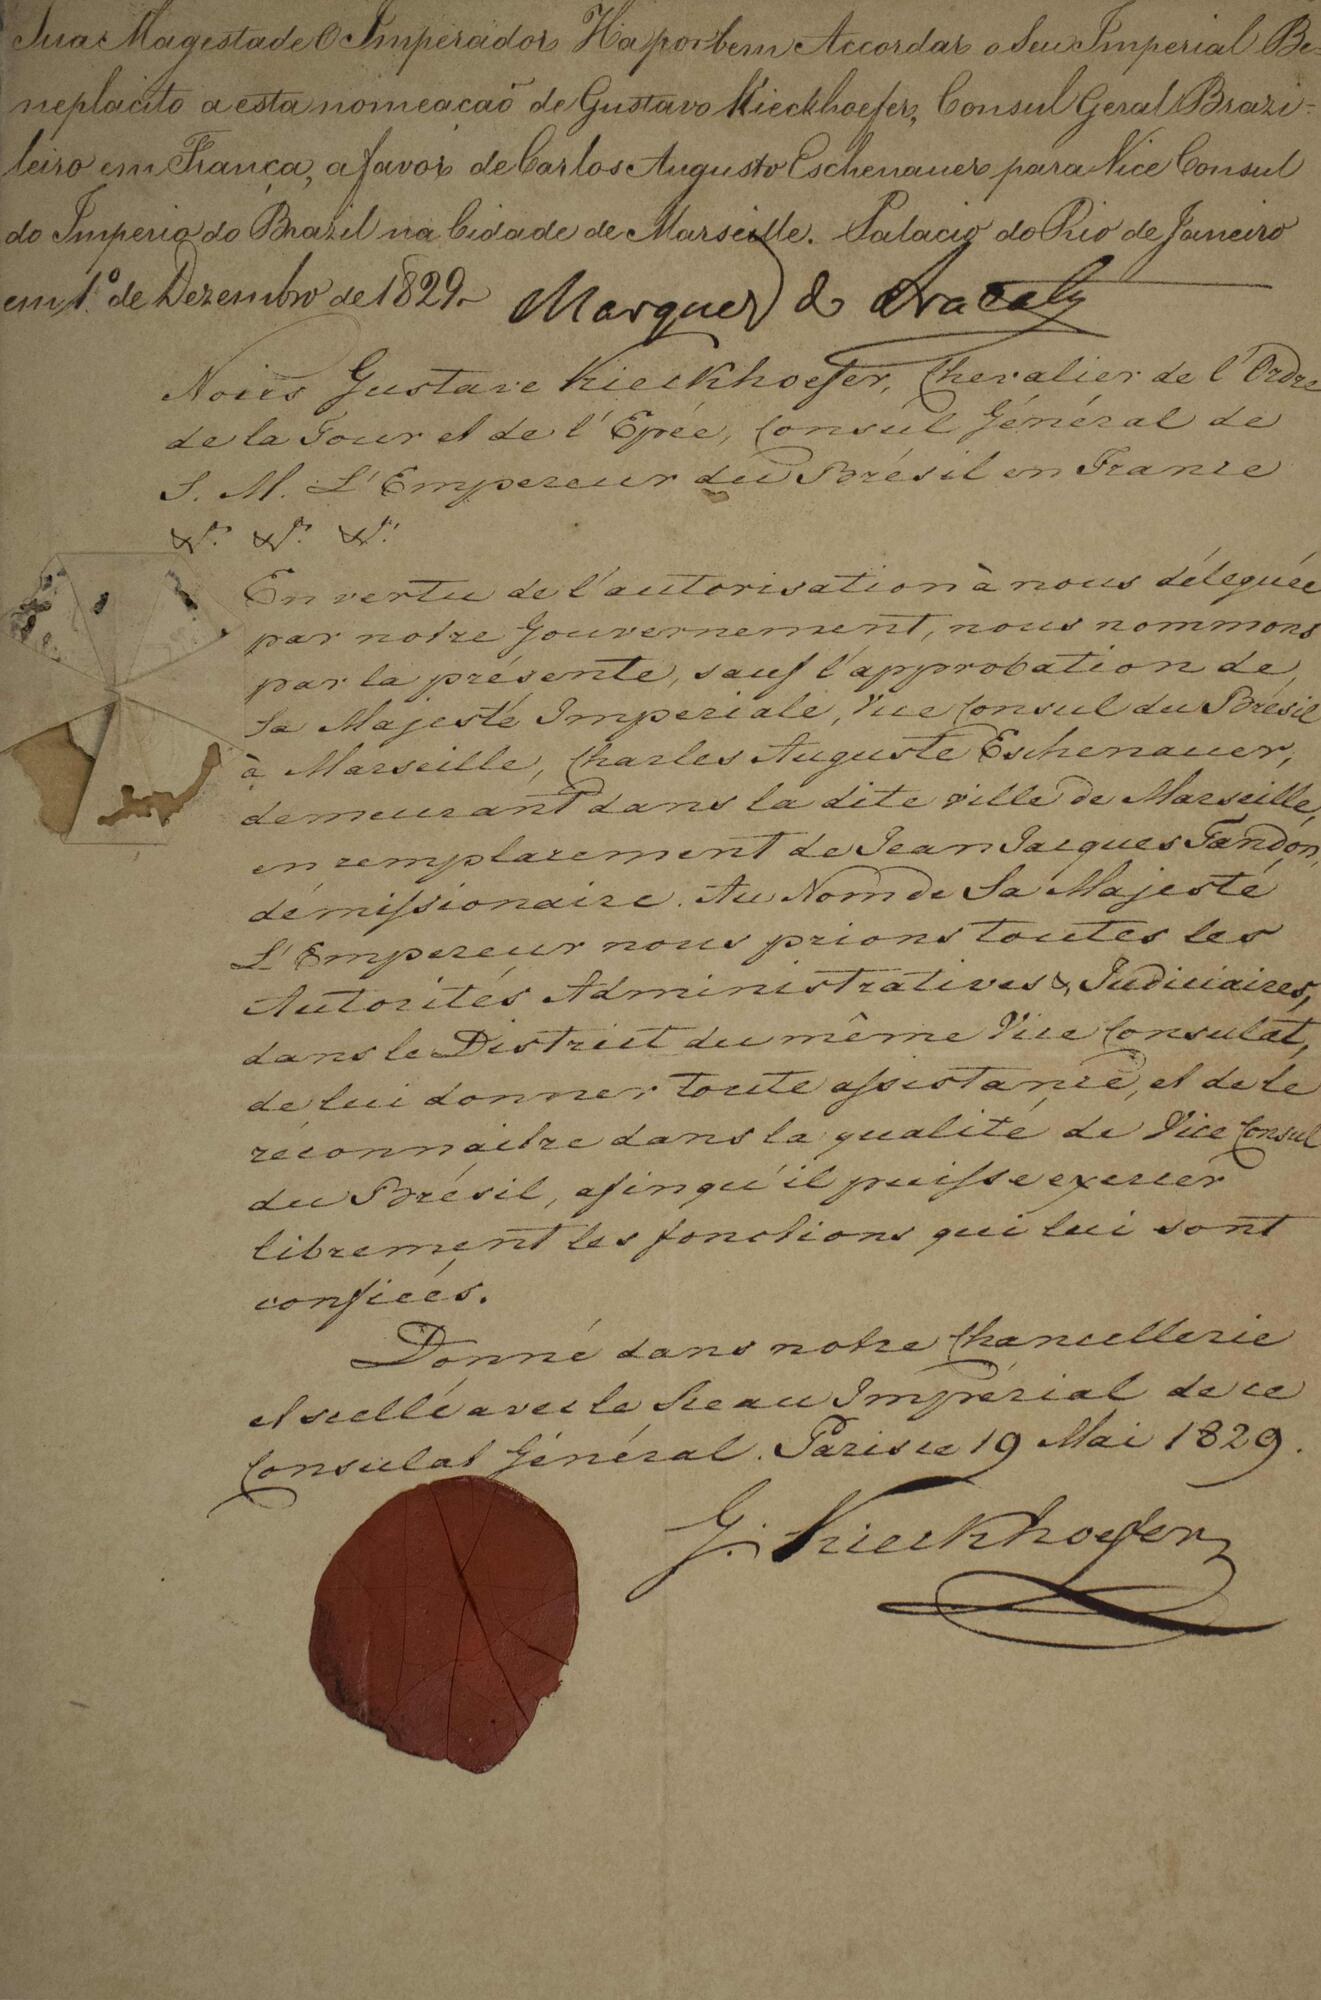 Sua Magestade O Imperador Ha por bem Accordar o Seu Imperial Be-
neplacito a esta nomeacaõ de Gustavo Kieckhoefer, Consul Geral Brazi-
leiro em França, a favor de Carlos Augusto Eschenauer para Vice Consul
do Imperio do Brazil na Cidade de Marseille. Palacio do Rio de Janeiro
em 1.º de Dezembro de 1829.
Marquez de Aracaty
Nous Gustave Kieckhoefer, Chevalier de l'Ordre
de la Tour et de l'Epée, Consul Général de
S. M. L'Empereur du Brésil en France
&. &. &.
En vertu de l'autorisation à nous déleguée
par notre Gouvernement, nous nommons
par la présente, sauf l'approbation de
Sa Majesté Imperiale, Vice Consul du Brésil
à Marseille, Charles Auguste Eschenauer,
demeurant dans la dite ville de Marseille,
en remplacement de Jean Jacques Fandon,
démissionaire. Au Nom de Sa Majesté
L'Empereur nous prions toutes les
Autorités Administratives & Judiciaires,
dans le District du même Vice Consulat,
de lui donner toute assistance, et de le
réconnaitre dans la qualité de Vice Consul
du Brésil, afinqu'il puisse exercer
librement les fonctions qui lui sont
confiées.
Donné dans notre Chancellerie
et scellé avec le Sceau Impérial de ce
Consulat Général. Paris ce 19 Mai 1829.
G. Kieckhoefer